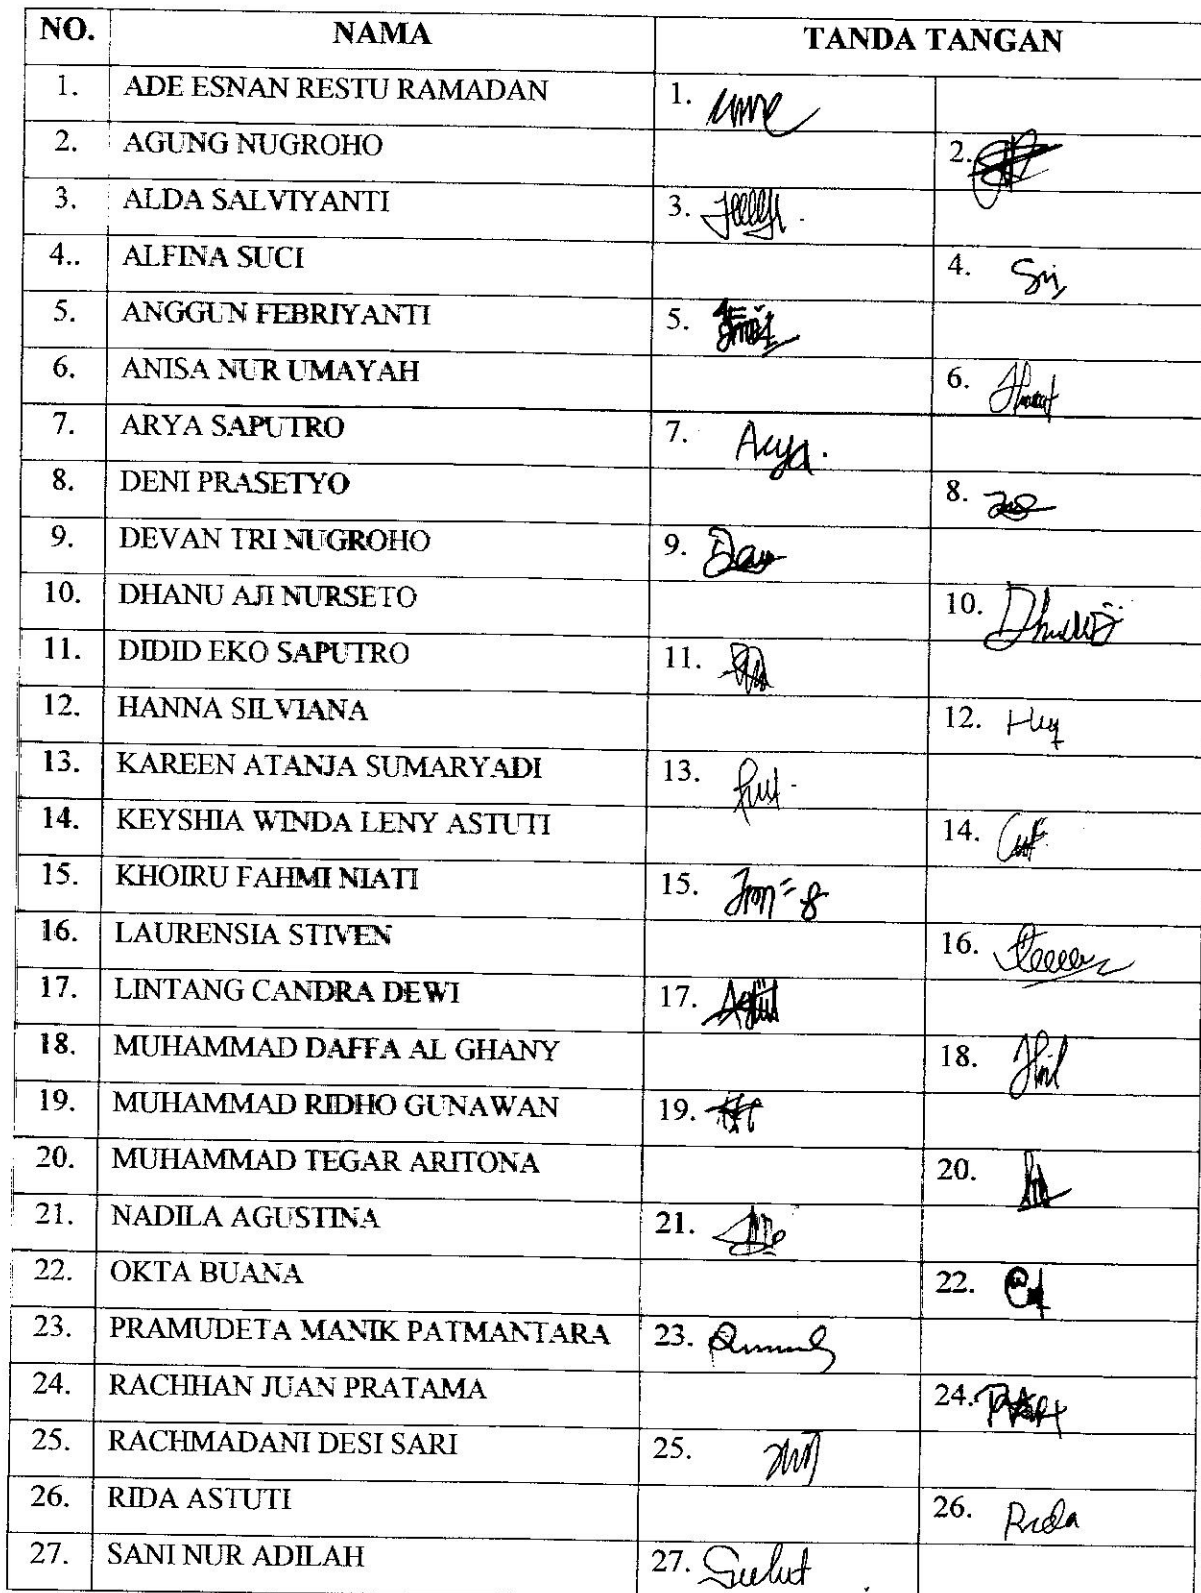 NO. NAMA TANDA TANGAN
1. ADE ESNAN RESTU RAMADAN 1.
2. AGUNG NUGROHO 2.
3. ALDA SALVIYANTI 3.
4.. ALFINA SUCI 4.
5. ANGGUN FEBRIYANTI 5.
6. ANISA NUR UMAYAH 6.
7. ARYA SAPUTRO 7. Arya.
8. DENI PRASETYO 8.
9. DEVAN TRI NUGROHO 9.
10. DHANU AJI NURSETO 10.
11. DIDID EKO SAPUTRO 11.
12. HANNA SILVIANA 12.
13. KAREEN ATANJA SUMARYADI 13.
14. KEYSHIA WINDA LENY ASTUTI 14.
15. KHOIRU FAHMI NIATI 15.
16. LAURENSIA STIVEN 16.
17. LINTANG CANDRA DEWI 17.
18. MUHAMMAD DAFFA AL GHANY 18.
19. MUHAMMAD RIDHO GUNAWAN 19.
20. MUHAMMAD TEGAR ARITONA 20.
21. NADILA AGUSTINA 21.
22. OKTA BUANA 22.
23. PRAMUDETA MANIK PATMANTARA 23.
24. RACHHAN JUAN PRATAMA 24.
25. RACHMADANI DESI SARI 25.
26. RIDA ASTUTI 26. Rida
27. SANI NUR ADILAH 27.